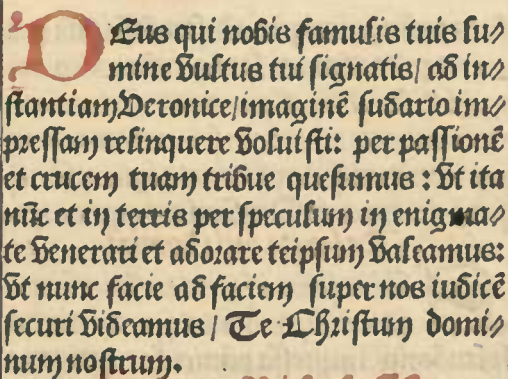 DEus qui nobis famulis tuis lu⸗
mine vultus tui signatis/ ad in⸗
stantiam Veronice/ imaginē sudario im⸗
pressam relinquere voluisti: per passionē
et crucem tuam tribue quesumus: vt ita
nūc et in terris per speculum in enigma⸗
te venerari et adorare teipsum valeamus:
vt nunc facie ad faciem super nos iudicē
securi videamus/ Te Christum domi⸗
num nostrum.